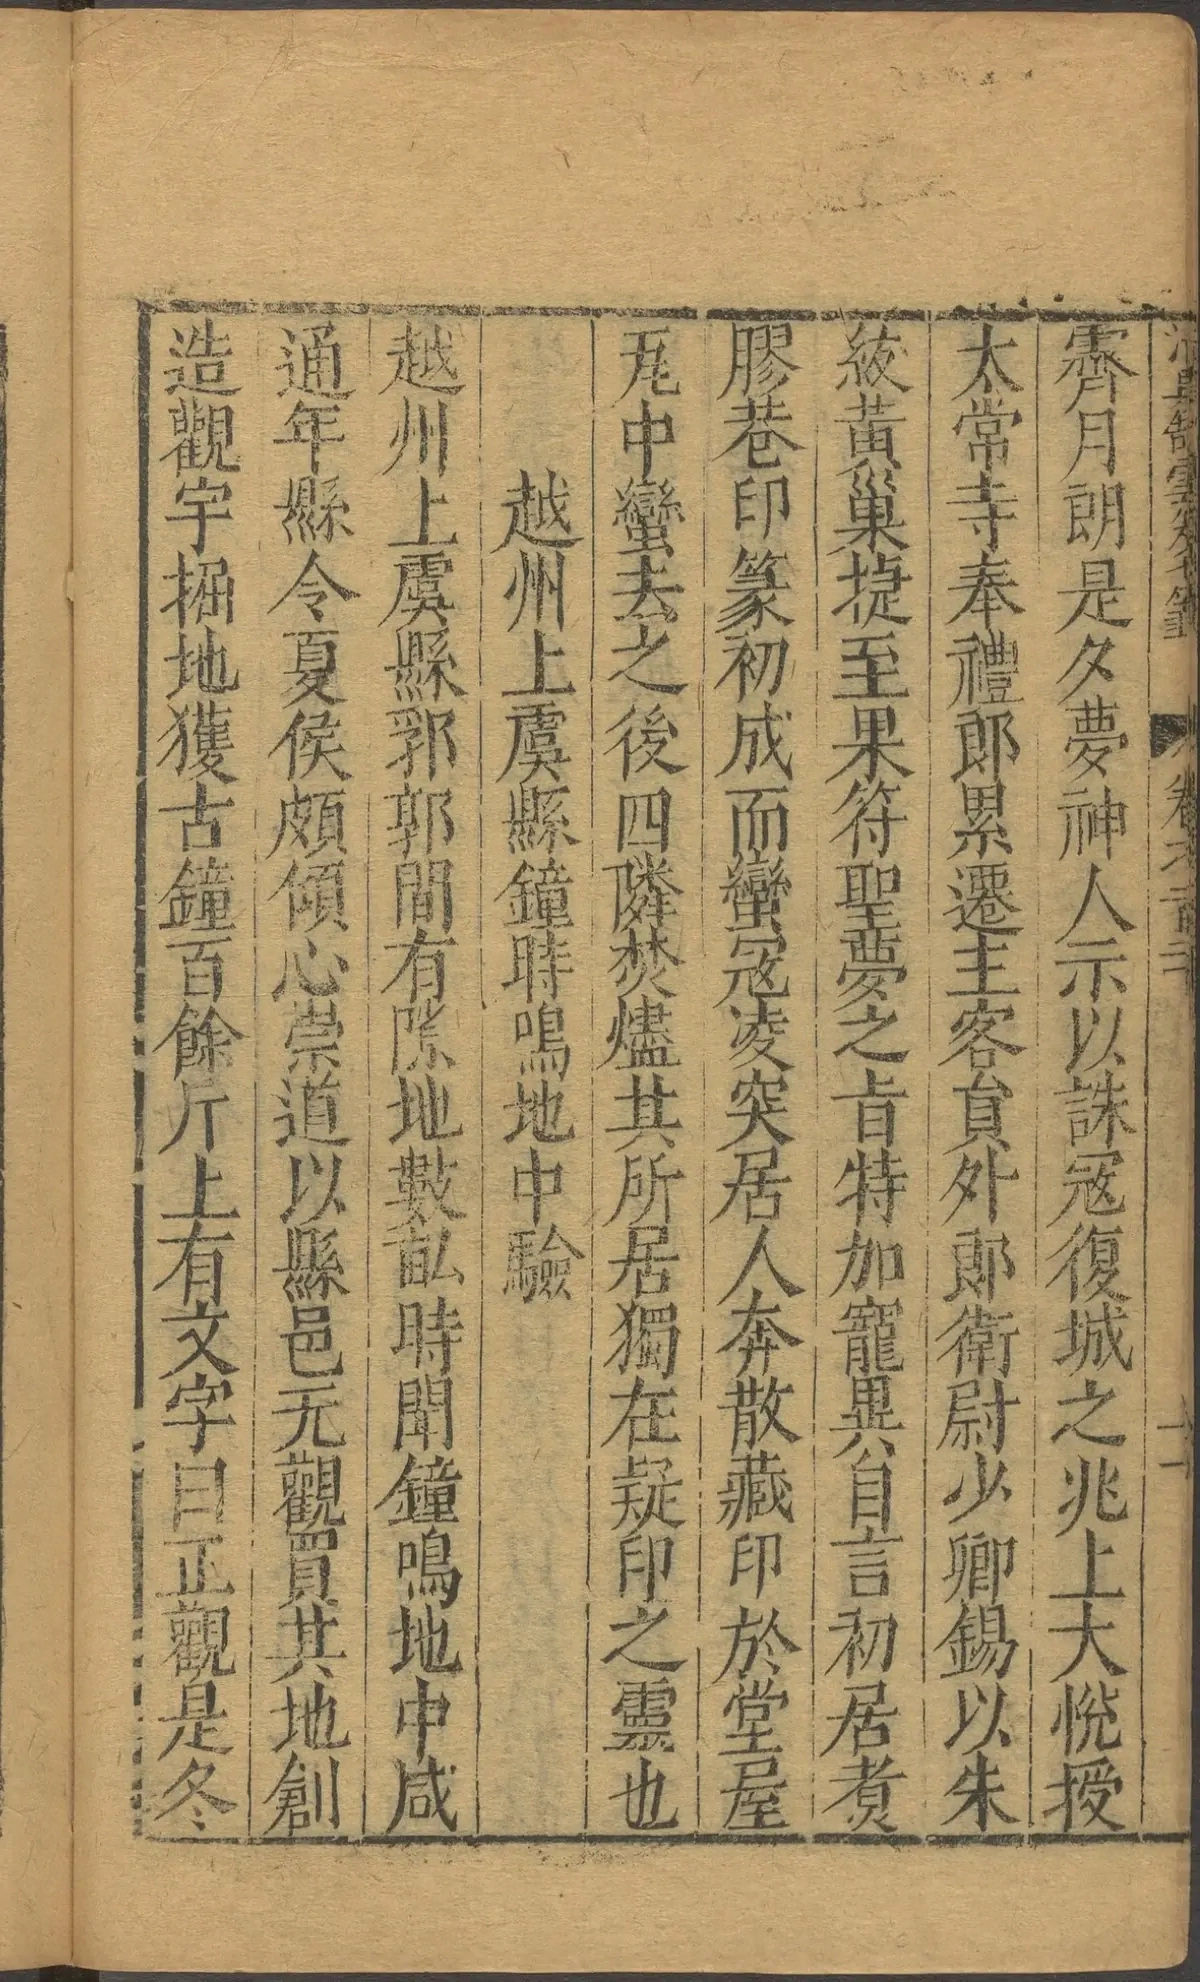 霽月朗是夕夢神人示以誅寇復城之兆上大恱授
太常寺奉禮郎累遷主客貟外郎衛尉少卿錫以朱
紱黃巢㨗至果符聖夢之㫖特加寵異自言初居煑
膠巷印篆初成而蠻寇凌突居人奔散藏印於堂屋
瓦中蠻去之後四隣焚燼其所居獨在疑印之靈也
越州上虞縣鐘時鳴地中驗
越州上虞縣郛郭間有隙地數畝時聞鐘鳴地中咸
通年縣令夏侯頗傾心崇道以縣邑无觀買其地創
造觀宇掘地獲古鐘百餘斤上有文字曰正觀是冬